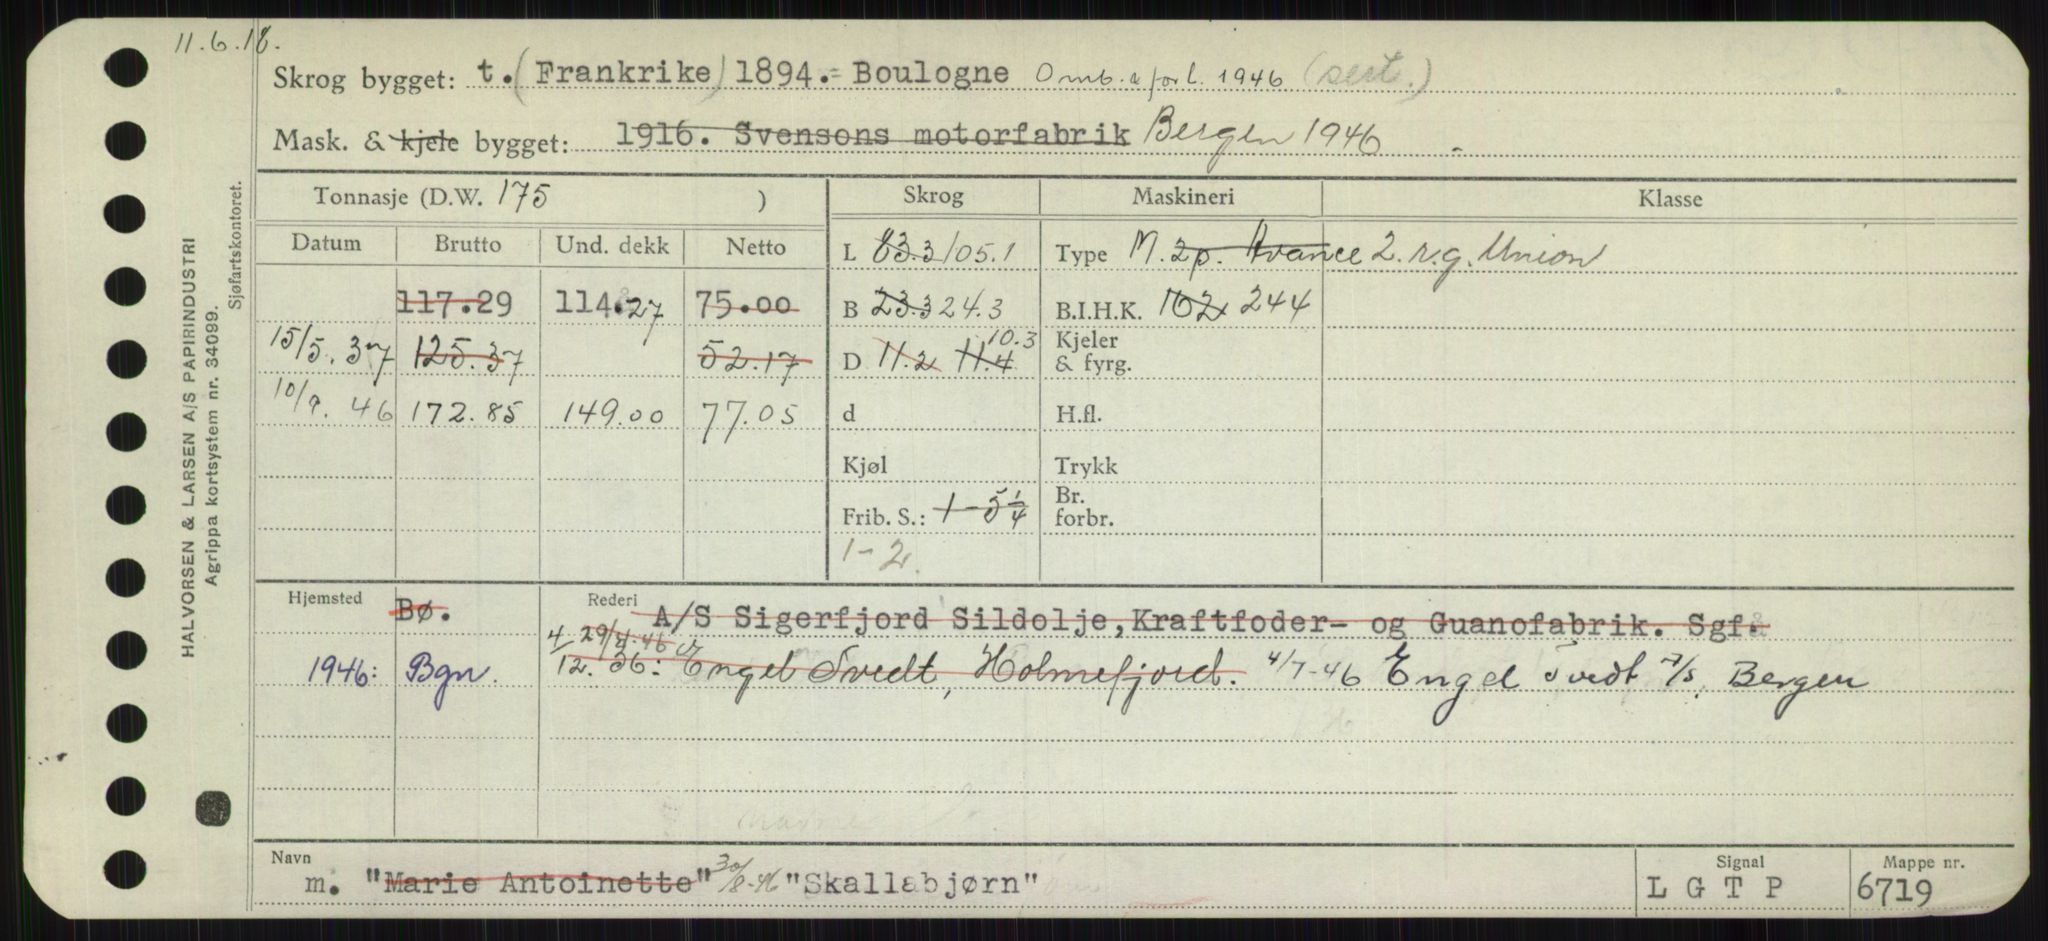 11.6.18.
Skrog bygget: t. (Frankrike) 1894.= Boulogne Omb. & forl. 1946 (sert.)
Mask. & kjele bygget: 1916. Svensons motorfabrik Bergen 1946
Tonnasje (D.W. 175 ) Skrog Maskineri Klasse
Datum Brutto Und. dekk Netto L 83.3 105.1 Type M. 2p. Avance 2.r.g. Union
117.29 114.27 75.00 B 23.3 24.3 B.I.H.K. 102 244
15/5.37 125.37 52.17 D 11.2 11.4 10.3 Kjeler & fyrg.
10/9.46 172.85 149.00 77.05 d H.fl.
Kjøl Trykk
Frib. S.: 1-5 1/4 Br. forbr.
1-2.
Hjemsted Bø. Rederi A/S Sigerfjord Sildolje,Kraftfoder- og Guanofabrik. Sgf.
29/4-46
1946: Bgn. 4/12.36: Engel Tvedt, Holmefjord. 4/7-46 Engel Tvedt A/S, Bergen
Navn Signal Mappe nr.
m. "Marie Antoinette" 30/8-46 "Skallabjørn" L G T P 6719
HALVORSEN & LARSEN A/S PAPIRINDUSTRI
Agrippa kortsystem nr. 34099.
Sjøfartskontoret.